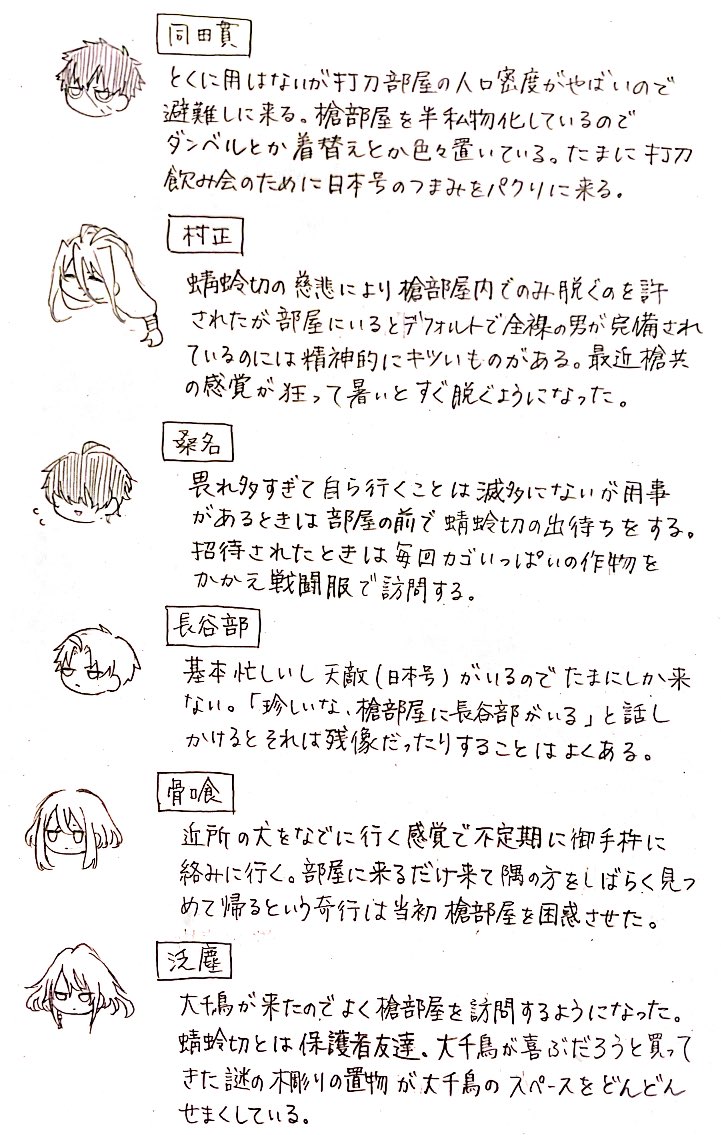 同田貫
とくに用はないが打刀部屋の人口密度がやばいので
避難しに来る。槍部屋を半私物化しているので
ダンベルとか着替えとか色々置いている。たまに打刀
飲み会のために日本号のつまみをパクりに来る。
村正
蜻蛉切の慈悲により槍部屋内でのみ脱ぐのを許
されたが部屋にいるとデフォルトで全裸の男が完備され
ているのには精神的にキツいものがある。最近槍共
の感覚が狂って暑いとすぐ脱ぐようになった。
桑名
畏れ多すぎて自ら行くことは滅多にないが用事
があるときは部屋の前で蜻蛉切の出待ちをする。
招待されたときは毎回カゴいっぱいの作物を
かかえ戦闘服で訪問する。
長谷部
基本忙しいし天敵(日本号)がいるのでたまにしか来
ない。「珍しいな、槍部屋に長谷部がいる」と話し
かけるとそれは残像だったりすることはよくある。
骨喰
近所の犬をなでに行く感覚で不定期に御手杵に
絡みに行く。部屋に来るだけ来て隅の方をしばらく見つ
めて帰るという奇行は当初槍部屋を困惑させた。
泛塵
大千鳥が来たのでよく槍部屋を訪問するようになった。
蜻蛉切とは保護者友達。大千鳥が喜ぶだろうと買って
きた謎の木彫りの置物が大千鳥のスペースをどんどん
せまくしている。